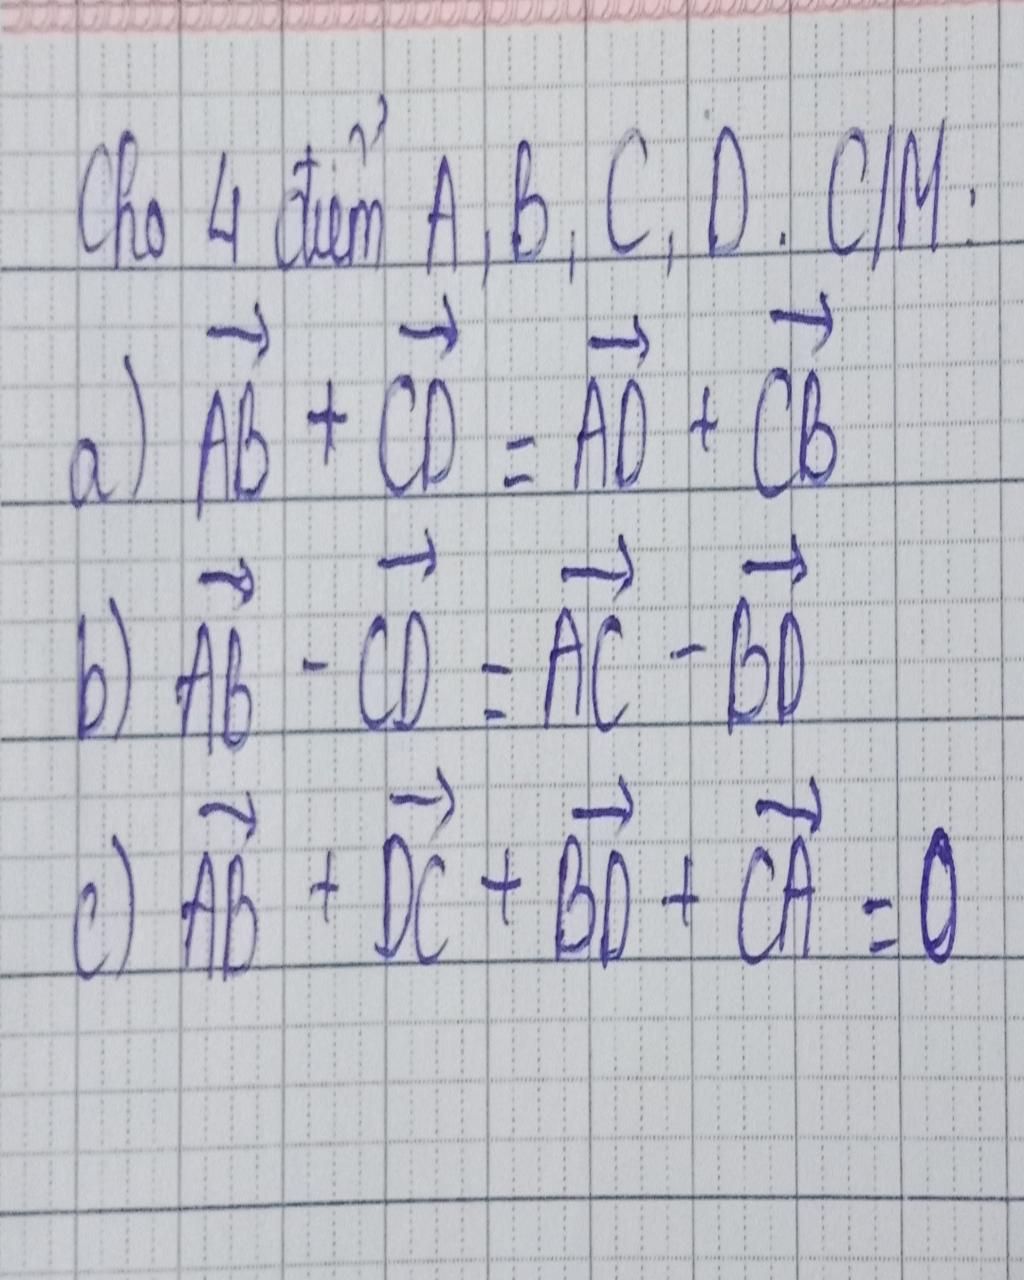 Cho 4 điểm A, B, C, D. C/M:
a) $\overrightarrow{AB} + \overrightarrow{CD} = \overrightarrow{AD} + \overrightarrow{CB}$
b) $\overrightarrow{AB} - \overrightarrow{CD} = \overrightarrow{AC} - \overrightarrow{BD}$
c) $\overrightarrow{AB} + \overrightarrow{DC} + \overrightarrow{BD} + \overrightarrow{CA} = 0$